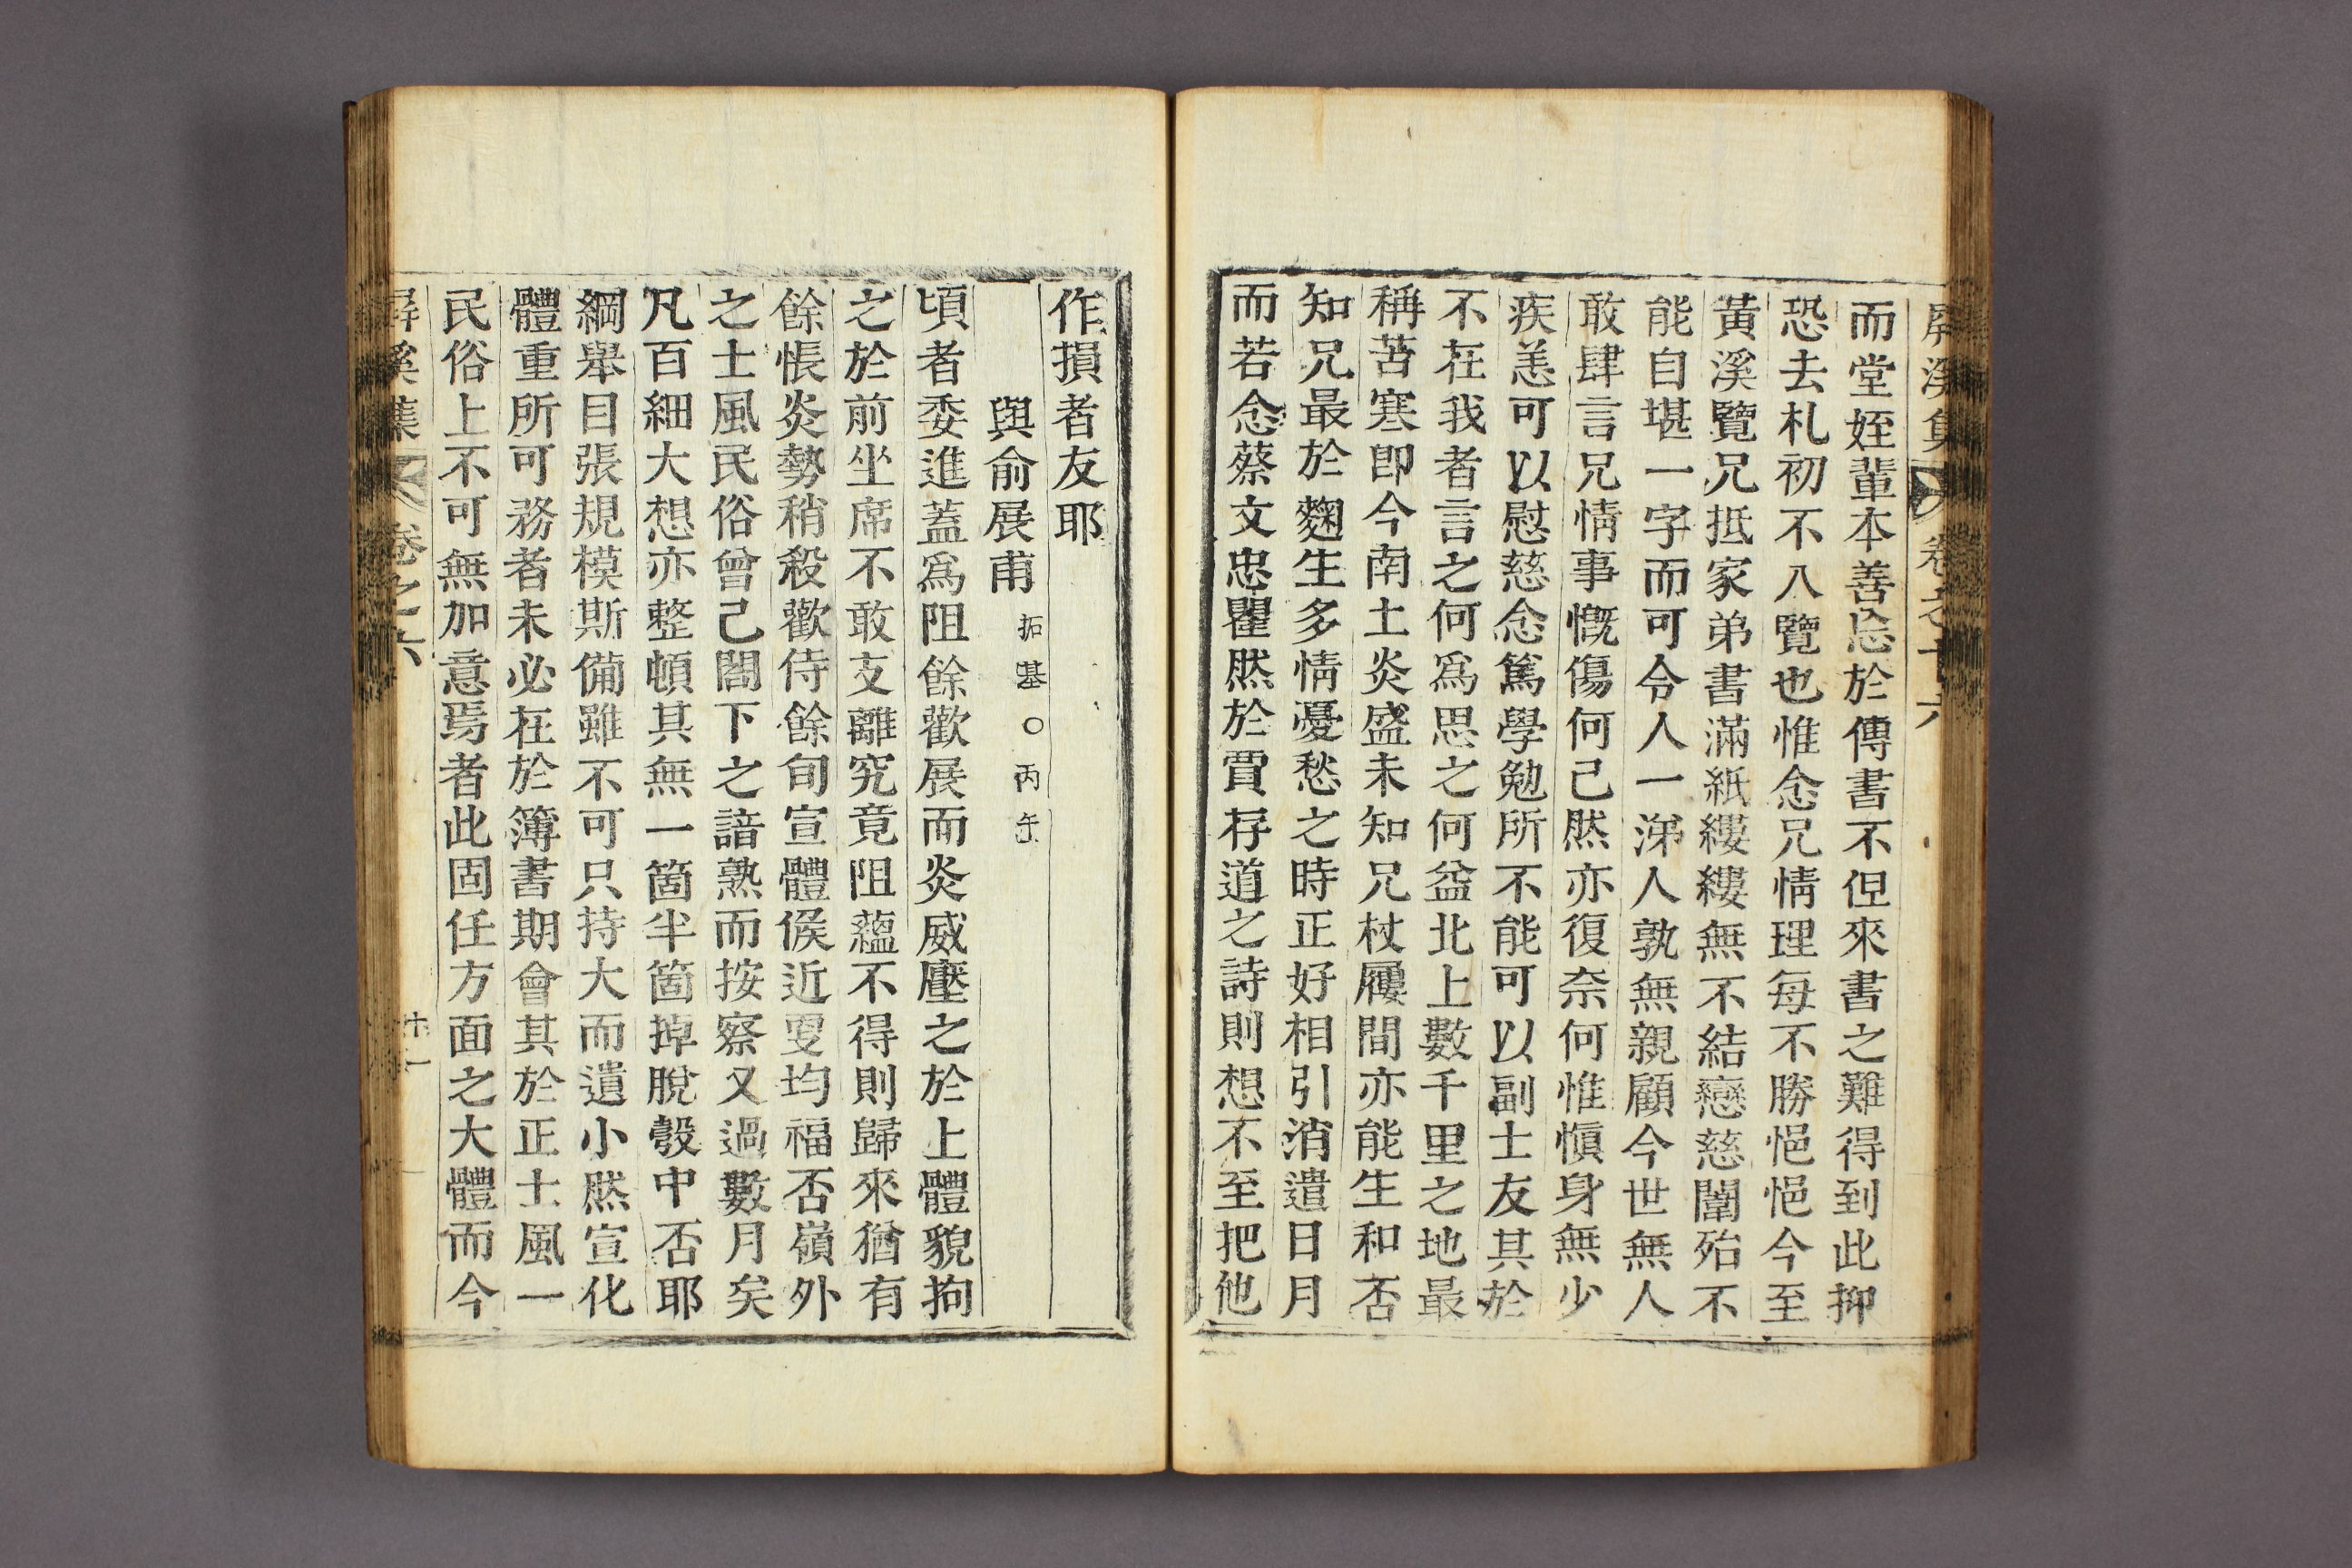 屛溪集 卷之十六
而堂姪輩本善忘於傳書不但來書之難得到此抑
恐去札初不入覽也惟念兄情理每不勝悒悒今至
黃溪覽兄抵家弟書滿紙縷縷無不結戀慈闈殆不
能自堪一字而可令人一涕人孰無親顧今世無人
敢肆言兄情事慨傷何已然亦復奈何惟愼身無少
疾恙可以慰慈念篤學勉所不能可以副士友其於
不在我者言之何爲思之何益北上數千里之地最
稱苦寒卽今南土炎盛未知兄杖屨間亦能生和否
知兄最於麴生多情憂愁之時正好相引消遣日月
而若念蔡文忠瞿然於賈存道之詩則想不至把他
作損者友耶
與俞展甫 拓基○丙午
頃者委進蓋爲阻餘歡展而炎威壓之於上體貌拘
之於前坐席不敢支離究竟阻蘊不得則歸來猶有
餘悵炎勢稍殺歡侍餘旬宣體候近更均福否嶺外
之士風民俗曾已閤下之諳熟而按察又過數月矣
凡百細大想亦整頓其無一箇半箇掉脫彀中否耶
綱舉目張規模斯備雖不可只持大而遺小然宣化
體重所可務者未必在於簿書期會其於正士風一
民俗上不可無加意焉者此固任方面之大體而今
屛溪集 卷之六 卄一